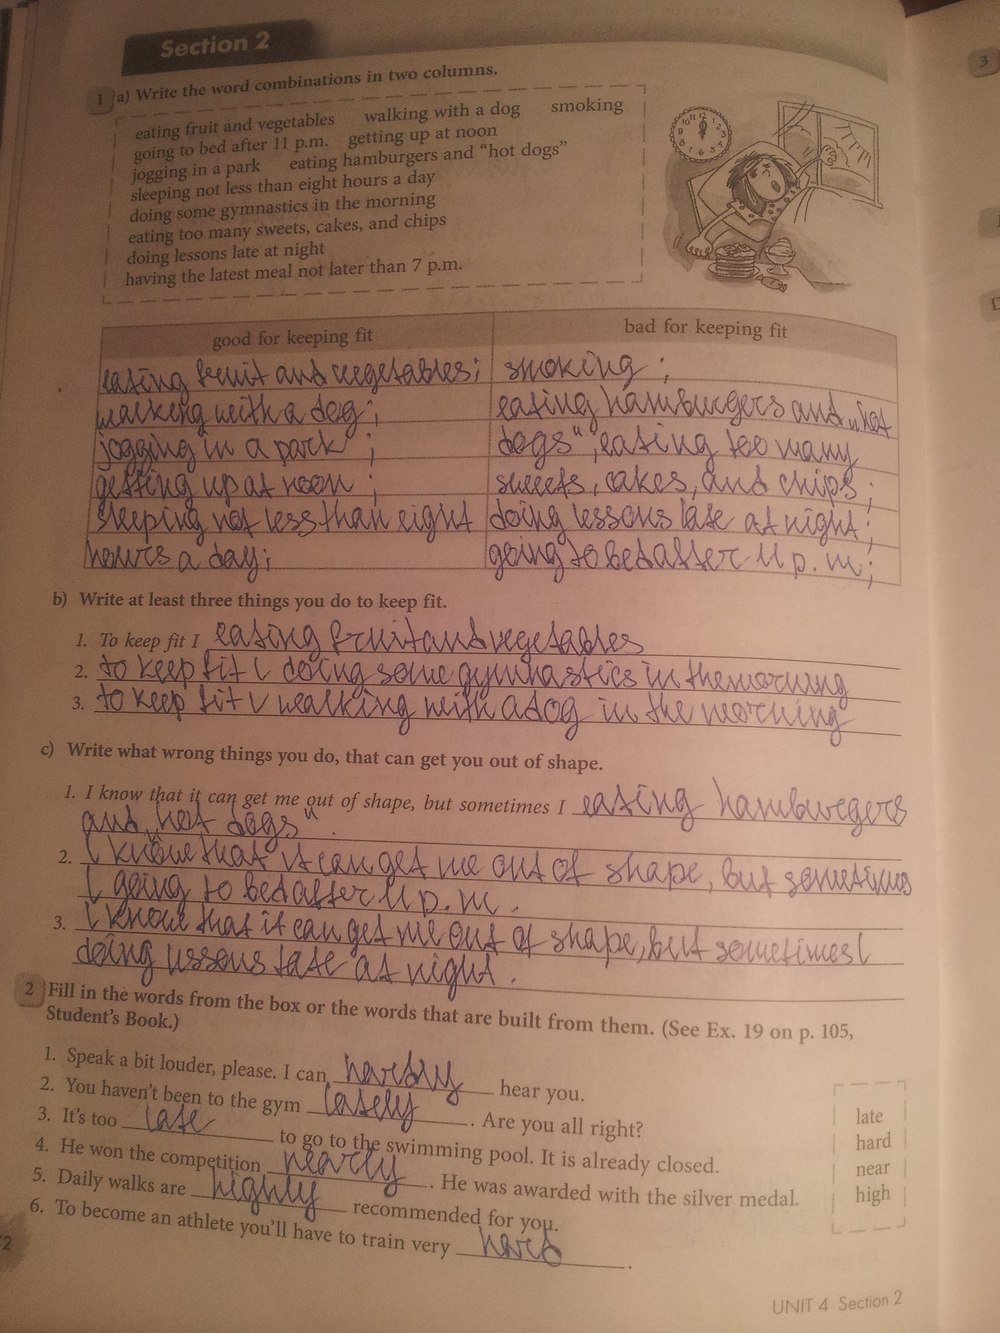 Section 2
1 a) Write the word combinations in two columns.
eating fruit and vegetables walking with a dog smoking
going to bed after 11 p.m. getting up at noon
jogging in a park eating hamburgers and “hot dogs”
sleeping not less than eight hours a day
doing some gymnastics in the morning
eating too many sweets, cakes, and chips
doing lessons late at night
having the latest meal not later than 7 p.m.
good for keeping fit bad for keeping fit
eating fruit and vegetables; smoking;
walking with a dog; eating hamburgers and „hot
jogging in a park; dogs“, eating too many
getting up at noon; sweets, cakes, and chips;
sleeping not less than eight doing lessons late at night;
hours a day; going to bed after 11 p.m;
b) Write at least three things you do to keep fit.
1. To keep fit I eating fruit and vegetables
2. to keep fit I doing some gymnastics in the morning
3. to keep fit I walking with a dog in the morning
c) Write what wrong things you do, that can get you out of shape.
1. I know that it can get me out of shape, but sometimes I eating hamburgers
and „hot dogs“.
2. I know that it can get me out of shape, but sometimes
I going to bed after 11 p.m.
3. I know that it can get me out of shape, but sometimes I
doing lessons late at night.
2 Fill in the words from the box or the words that are built from them. (See Ex. 19 on p. 105,
Student's Book.)
1. Speak a bit louder, please. I can hardly hear you.
2. You haven't been to the gym lately. Are you all right?
3. It's too late to go to the swimming pool. It is already closed.
4. He won the competition nearly. He was awarded with the silver medal.
5. Daily walks are highly recommended for you.
6. To become an athlete you'll have to train very hard.
late
hard
near
high
UNIT 4 Section 2
2
3